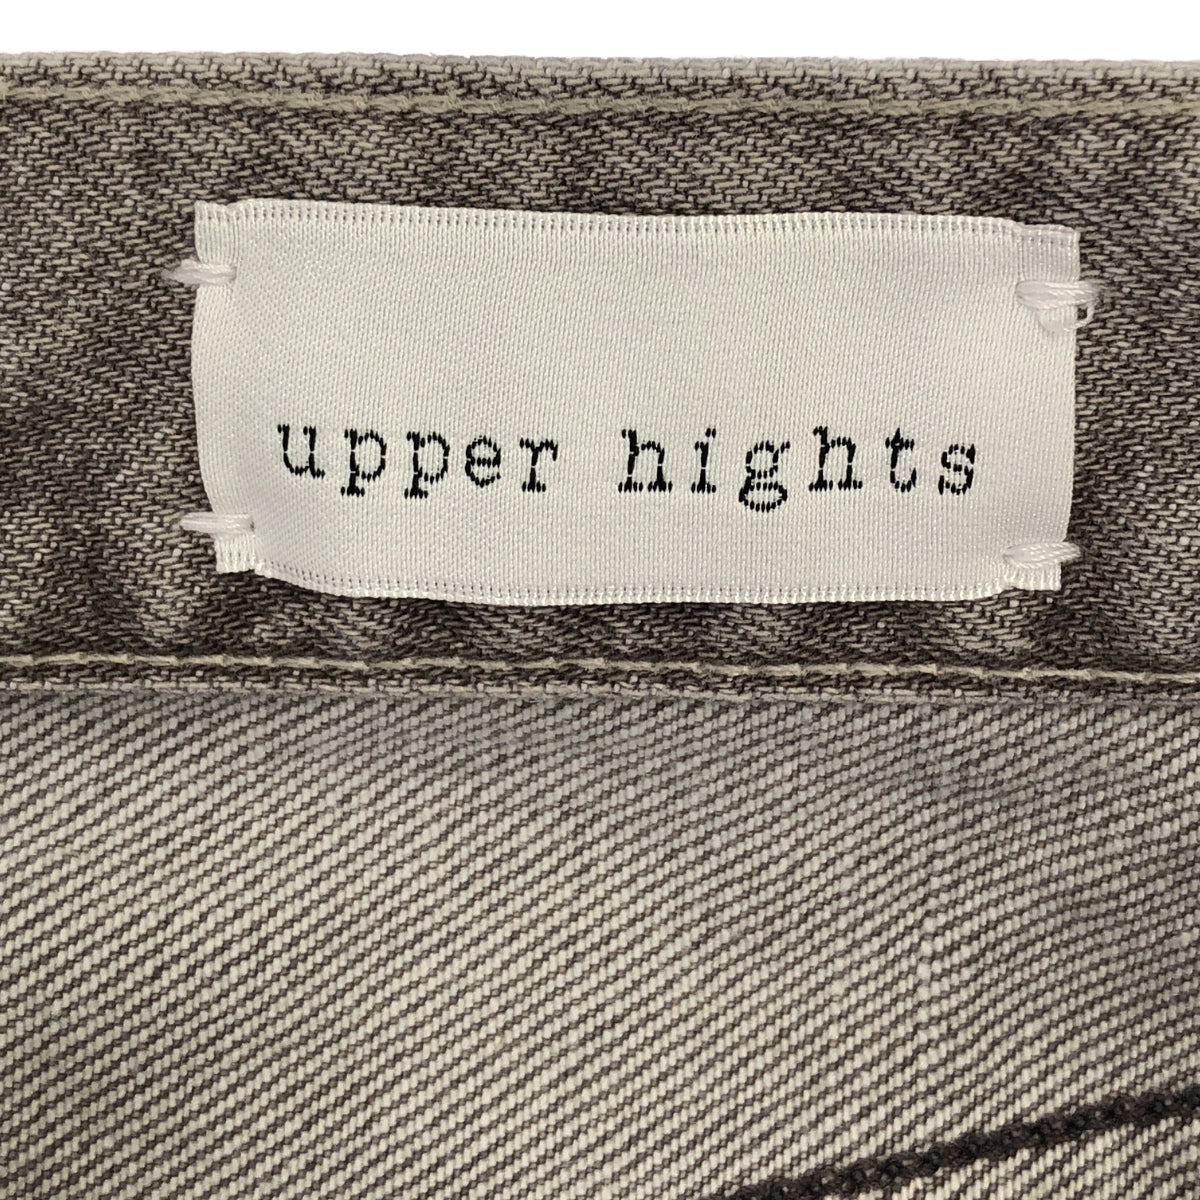 upper hights